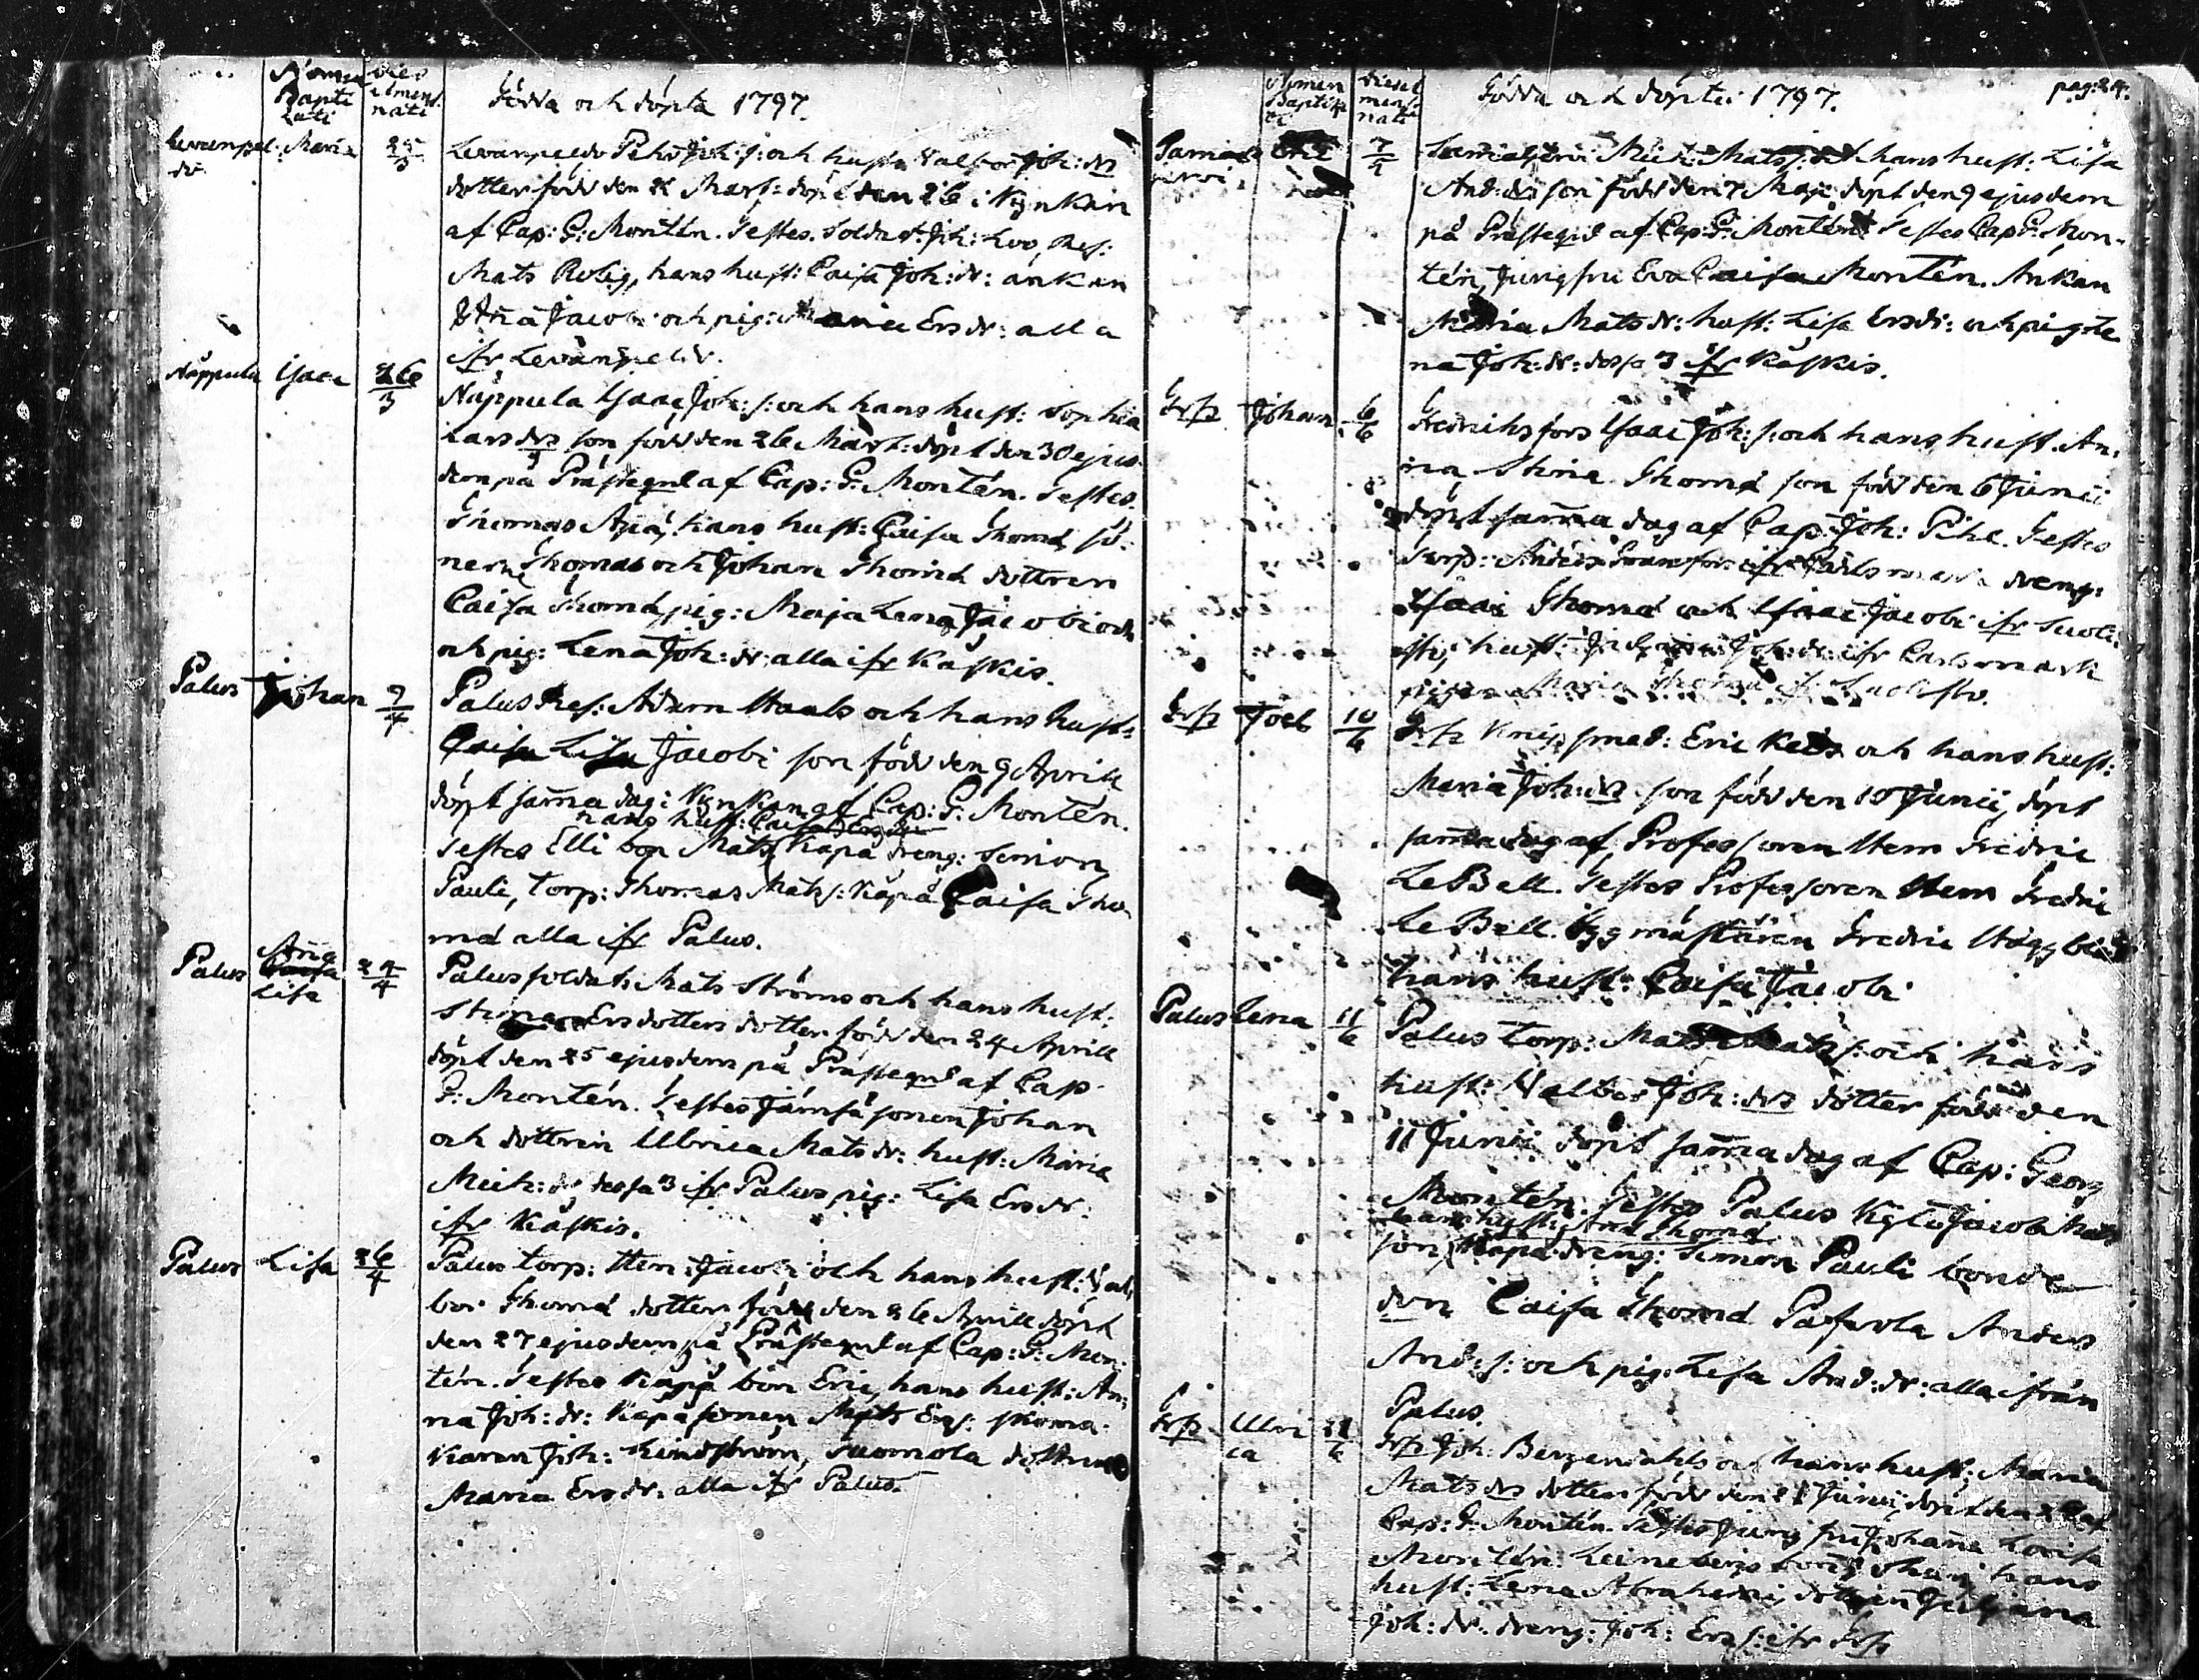 Nomen Bapti zati
Dies et mens. nati
Födda och döpta 1797.
Levanpel: dr.
Maria
25/3
Levanpeldr Pehr Joh: s: och hust: Valbor Joh: drs
dotter född den 25 Mart: döpt den 26 i Kyrkan
af Cap: G: Montén. Testes. Soldat: Joh: Loo, Res:
Mats Rolig, hans hust: Caisa Joh: dr: änkan
Anna Jacobi och pig: Maria Ersdr: alla
ifr Levanpeldr.
Näppula
Isaac
26/3
Näppula Isaac Joh: s: och hans hust: Sophia
Lars drs son född den 26 Mart: döpt den 30 ejus
dem på Prästegrd af Cap: G: Montén. Testes.
Thomas hans hust: Caisa Thomd sö-
nerne Thomas och Johan Thomd dottren
Caisa Thomd, pig: Maja Lena Jacobi och
och pig: Lena Joh: dr: alla ifr Käskis.
Palus
Johan
9/4
Palus Res: Adam Staals och hans hust:
Caisa Lisa Jacobi son född den 9 Aprill
döpt samma dag i Kyrkan af Cap: G: Montén.
hans hust: Caisa Ersdr
Testes Elli bon Mats Kapa dreng: Simon
Pauli, torp: Thomas Mats: Kapa Caisa Tho
md alla ifr Palus.
Palus
Anna Caisa Lisa
24/4
Palus soldat: Mats Ströms och hans hust:
Stina Ersdotters dotter född den 24 Aprill
döpt den 25 ejusdem på Prästegrd af Cap
G: Montén. Testes Jämsä sonen Johan
och dottren Ulrica Matsdr: hust: Maria
Mich: dr dessa 3 ifr Palus pig: Lisa Ersdr:
ifr Käskis.
Palus
Lisa
26/4
Palus torp: Hen: Jacobi och hans hust: Val
bor Thomd dotter född den 26 Aprill döpt
den 27 ejusdem på Prästegrd af Cap: G: Mon-
tén. Testes Kapa bon Eric, hans hust: An-
na Joh: dr: Kapa sonen Mats Ers: skoma-
karen Joh: Lindström, Suomola dottren
Maria Ersdr: alla ifr Palus.
Nomen Baptiza ti
Dies et mens. nati
Födda och döpta 1797.
pag: 24:
Samals
Eric
7/5
Mich: Mats: s: och hans hust: Lisa
And: drs son född den 7 Maji döpt den 9 ejusdem
på Prästegrd af Cap: G: Montén Testes Cap G: Mon-
tén, Jungfru Eva Caisa Montén. Änkan
Maria Matsdr: hust: Lisa Ersdr: och pig: Le
na Joh: dr: dessa 3 ifr Käskis.
Frfs
Johan
6/6
Fredrichsfors Isaac Joh: s: och hans hust. An-
na Stina Thomd son född den 6 Junii
döpt samma dag af Cap: Joh: Pihl. Testes
Torp: Anders ifr Carlsmark dreng:
Isaac Thomd och Isaac Jacobi ifr
hust: Joh: dr: ifr Carlsmark
pigan Maria Thomd ifr
Frfs
Joel
10/6
Frfs Knip smed: Eric och hans hust:
Maria Joh: drs son född den 10 Junii, döpt
samma dag af Professoren Herr Fredric
LeBell. Testes Professoren Herr Fredric
Le Bell. Bygmästaren Fredric Häggblad
hans hust: Caisa Jacobi
Palus
Lena
11/6
Palus torp: Mats Mats: s: och hans
hust: Valbor Joh: drs dotter född den
11 Junii döpt samma dag af Cap: Georg
Montén. Testes Palus Jacob Mats
hans hust: Anna Thomd
son, Kapa dreng: Simon Pauli bonde
don Caisa Thomd Anders
And: s: och pig: Lisa And: dr: alla ifrån
Palus.
Frfs
Ulri ca
21/6
Frfs Joh: Bergendahls och hans hust: Maria
Mats drs dotter född den 21 Junii, döpt den af
Cap: G: Montén. Testes Jungfru Johanna Lovisa
Montén. Leinebergs bon Johan, hans
hust: Lena Abrahami, dottren Juliana
Joh: dr. dreng: Joh: Ers: s: ifr Frfs